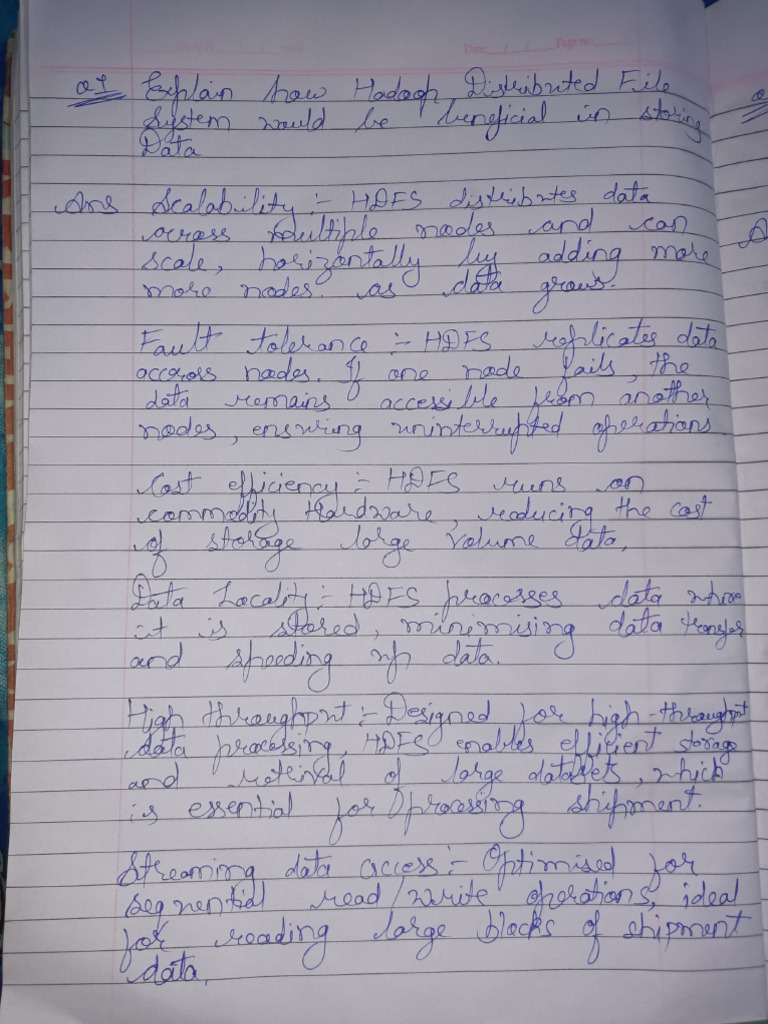 Date: / / Page no:
Q1 Explain how Hadoop Distributed File
System would be beneficial in storing
Data
Ans Scalability :- HDFS distributes data
across multiple nodes and can
scale, horizontally by adding more
more nodes. as data grows.
Fault tolerance :- HDFS replicates data
accross nodes. If one node fails, the
data remains accessible from another
nodes, ensuring uninterrupted operations
Cost efficiency :- HDFS runs on
commodity Hardware, reducing the cost
of storage large volume data,
Data Locality :- HDFS processes data where
it is stored, minimising data transfer
and speeding up data.
High throughput :- Designed for high-throughput
data processing, HDFS enables efficient storage
and reteival of large datasets, which
is essential for processing shipment.
Streaming data access :- Optimised for
sequential read/write operations, ideal
for reading large blocks of shipment
data,